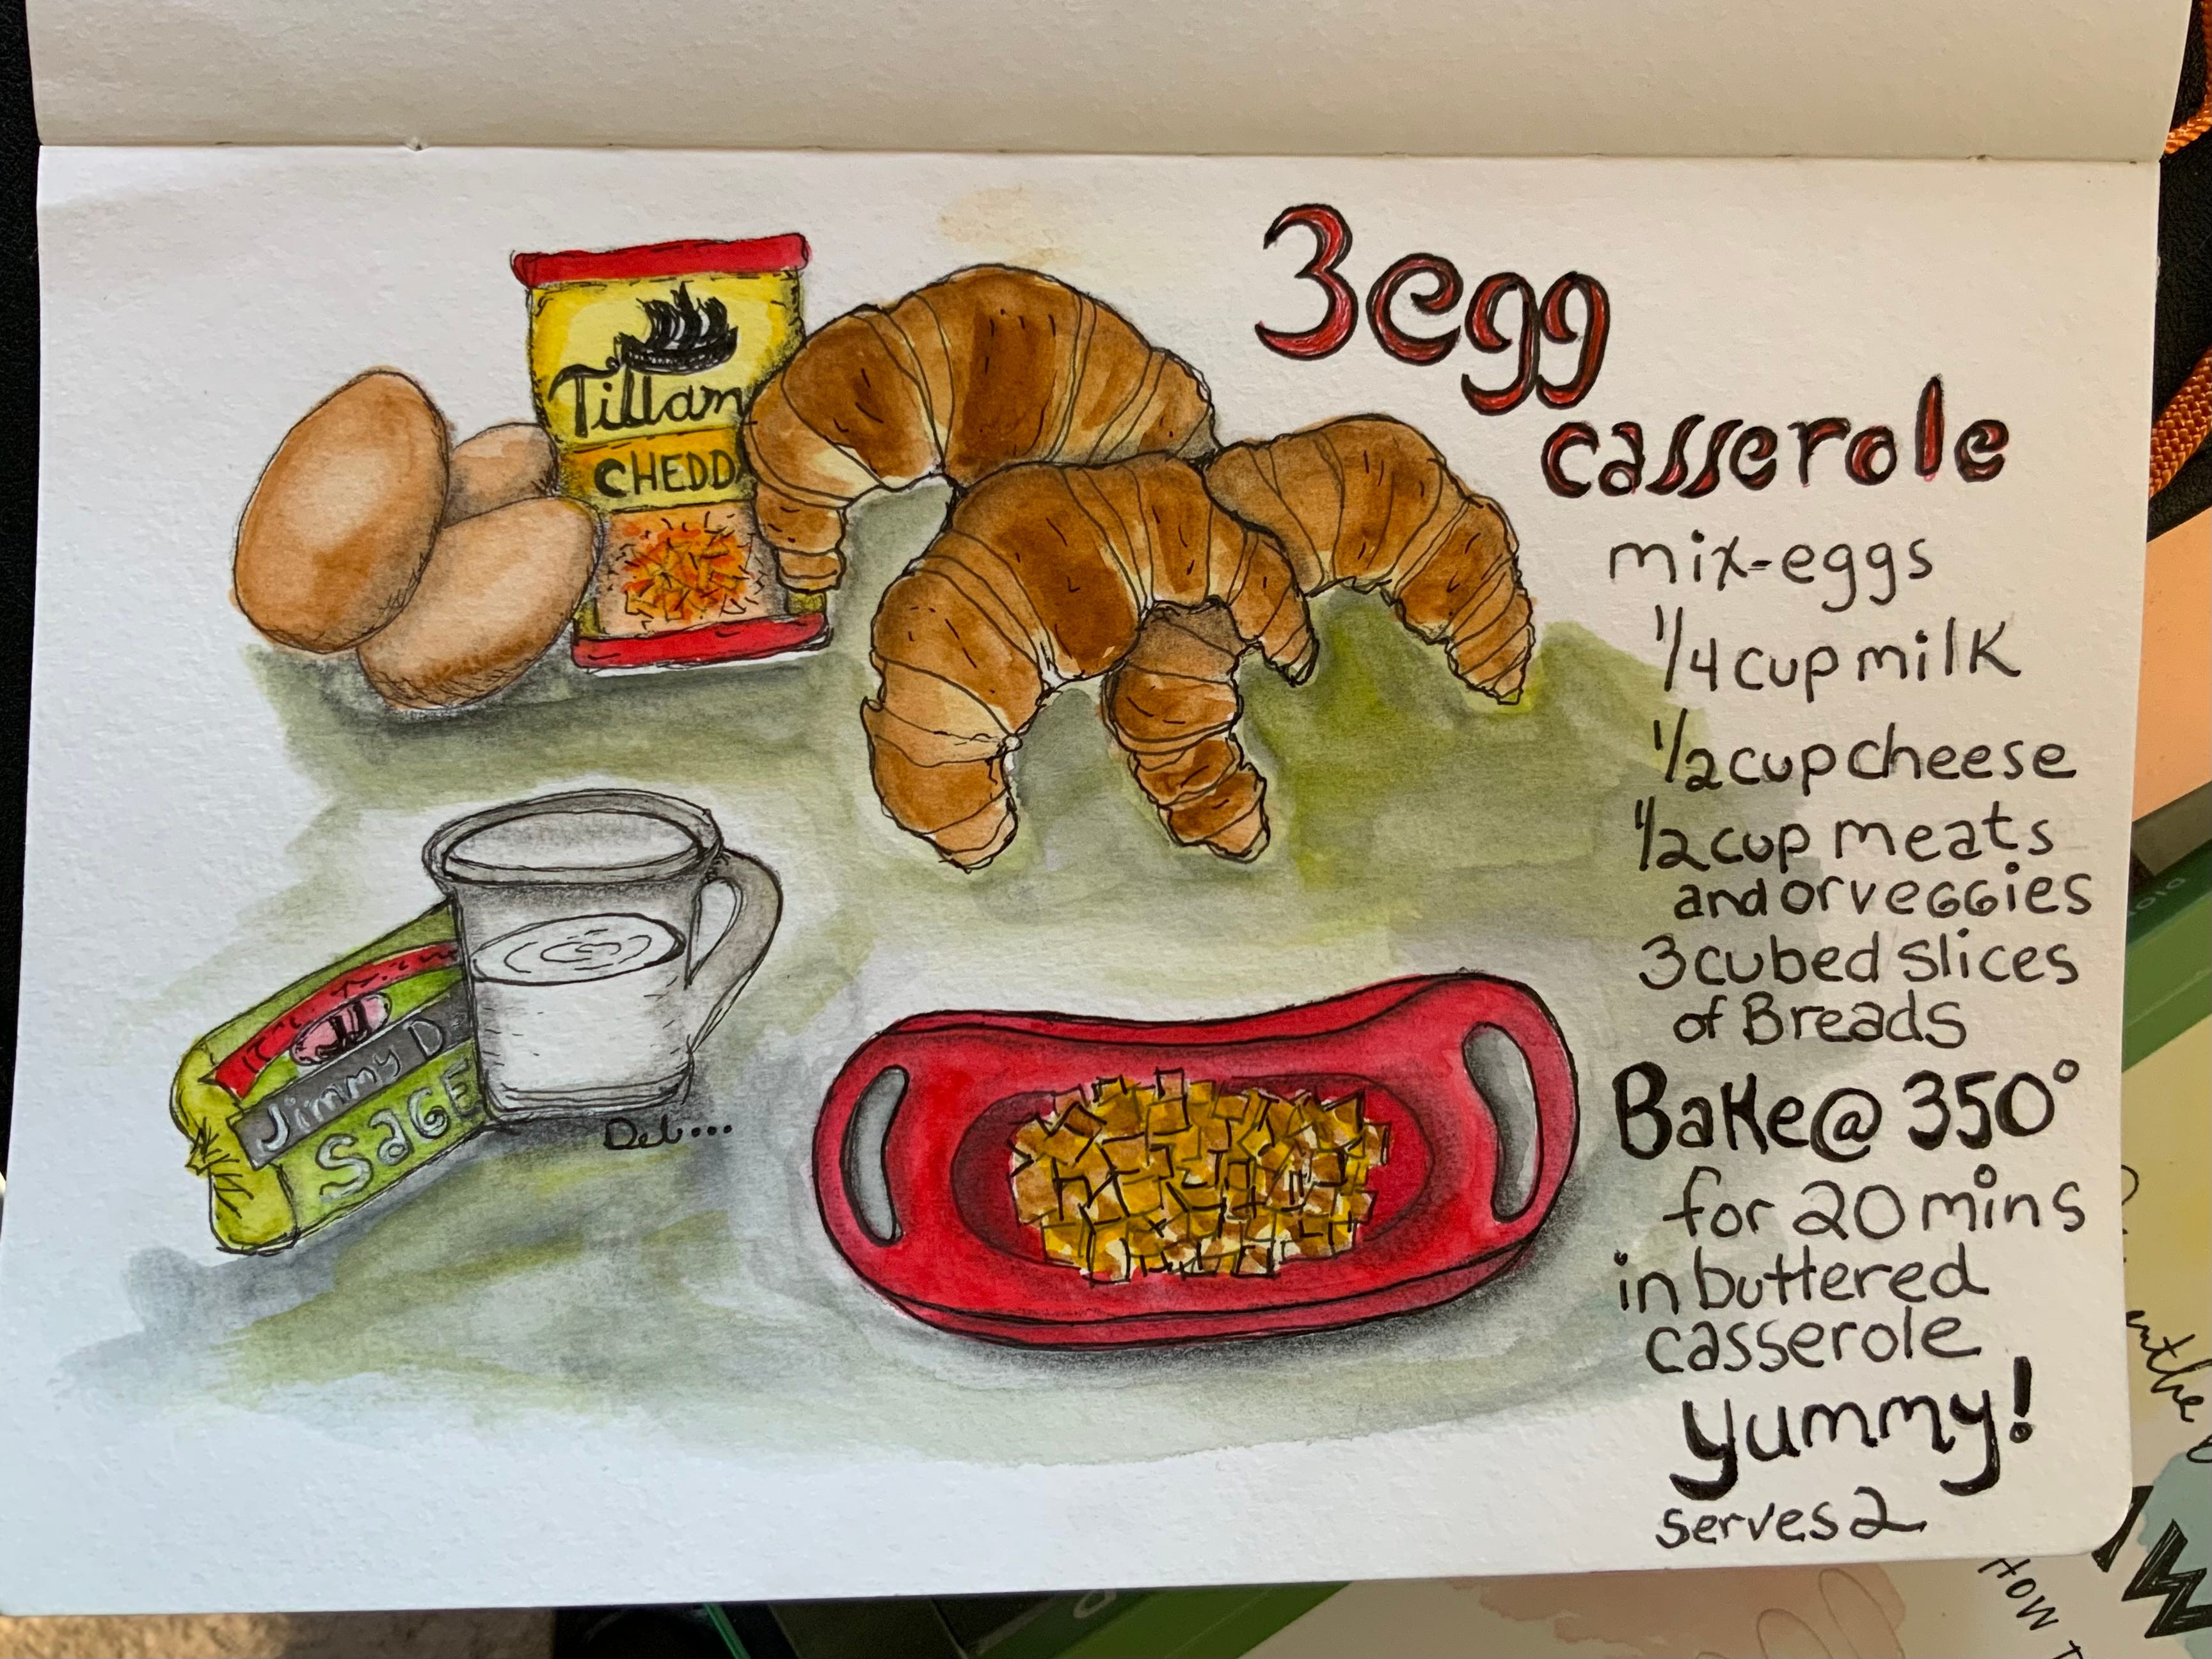 3 egg
casserole
mix-eggs
1/4 cup milk
1/2 cup cheese
1/2 cup meats
and or veggies
3 cubed slices
of Breads
Bake @ 350°
for 20 mins
in buttered
casserole
yummy!
serves 2
Tillam
CHEDD
Jimmy D
SAGE
Deb...
HOW T